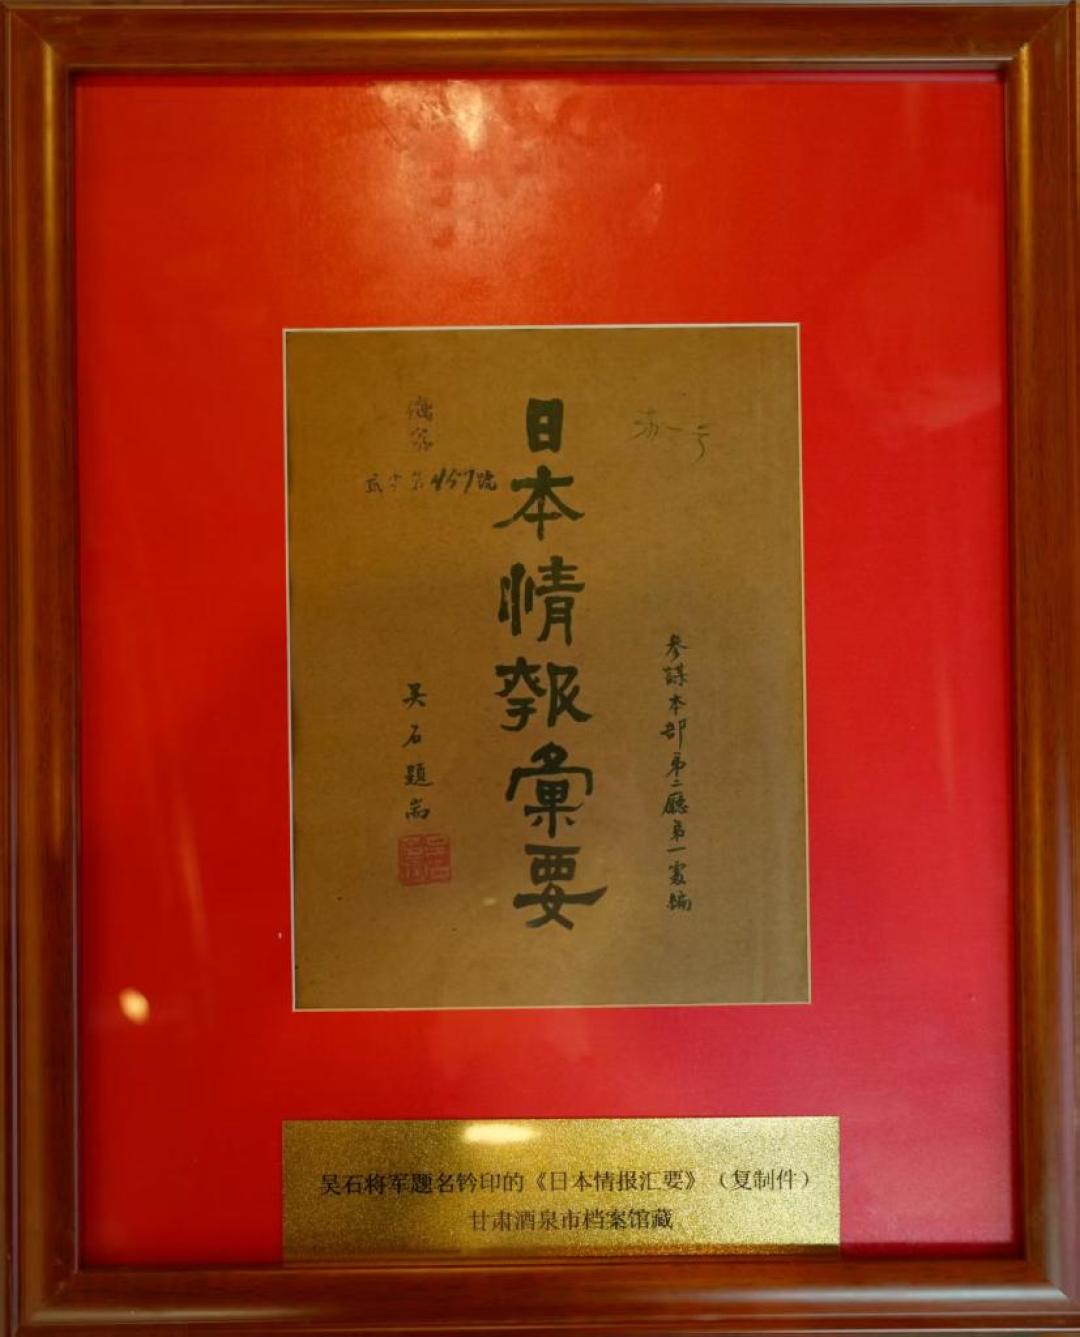 參謀本部第二廳第一處編
日本情報彙要
457號
吴石題耑
吴石将军题名钤印的《日本情报汇要》（复制件）
甘肃酒泉市档案馆藏